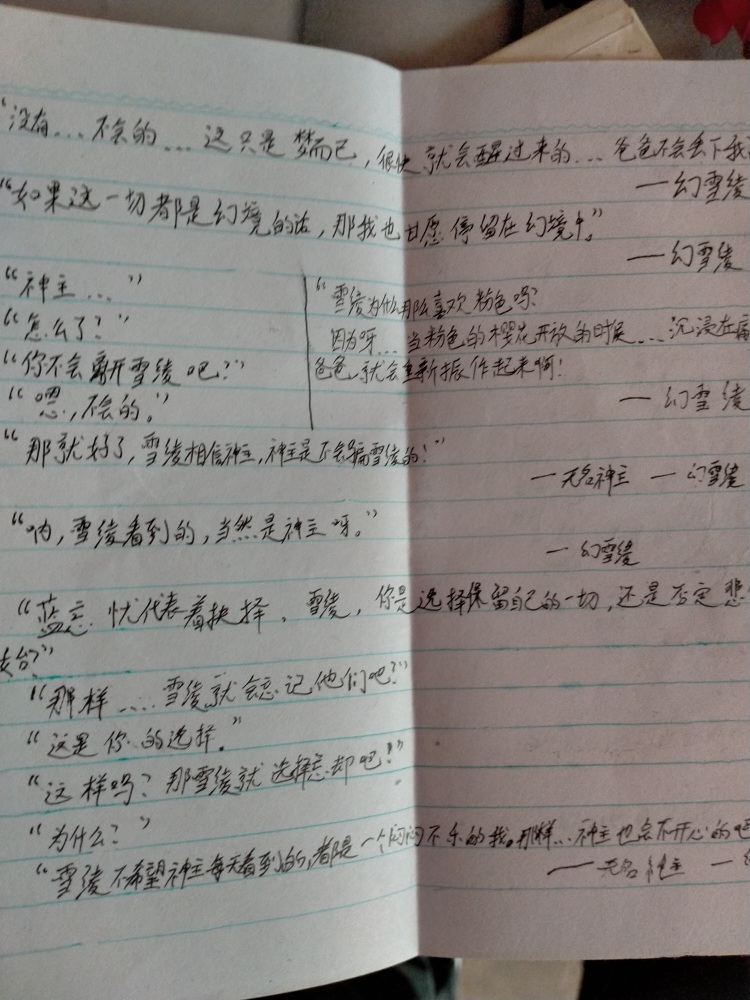 “没有...不会的...这只是梦而已，很快就会醒过来的...爸爸不会丢下我
—幻雪绫
“如果这一切都是幻境的话，那我也甘愿停留在幻境中。”
—幻雪绫
“神主...”
“怎么了？”
“你不会离开雪绫吧？”
“嗯，不会的。”
“雪绫为什么那么喜欢粉色吗？
因为呀...当粉色的樱花开放的时候...沉浸在
爸爸，就会重新振作起来啊！
—幻雪绫
“那就好了，雪绫相信神主，神主是不会骗雪绫的！”
—无名神主 —幻雪绫
“呐，雪绫看到的，当然是神主呀。”
—幻雪绫
“蓝忘忧代表着抉择。雪绫，你是选择保留自己的一切，还是否定悲
“那样....雪绫就会忘记他们吧？”
“这是你的选择。”
“这样吗？那雪绫就选择忘却吧！”
“为什么？”
“雪绫不希望神主每天看到的，都是一个闷闷不乐的我。那样...神主也会不开心的吧
—无名神主 —